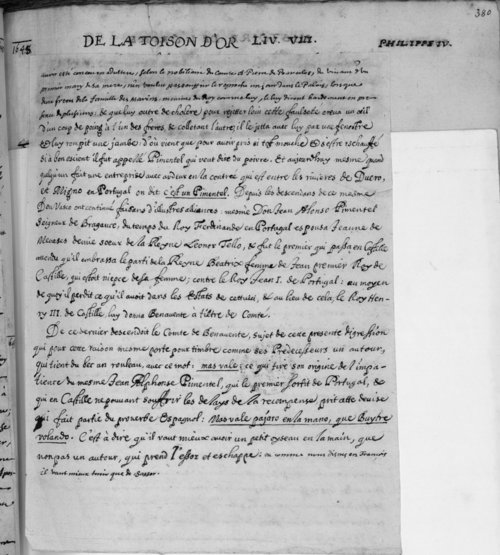 380
1648
DE LA TOISON D'OR LIV. VIII.
PHILIPPE IV.
avoir esté conceu en adultere, selon le nobiliaire du Comte Dom Pierre de Barcelos, du vivant d'un
premier mary de sa mere, n'en voulut pas souffrir le reproche un jour dans le Palais, lors que
deux freres de la famille des
de quoy outré de cholere, pour rejetter loin cette faulseté creva un œil
d'un coup de poing à l'un des freres, & colletant l'autre; il se jetta avec luy par une fenestre
& luy rompit une jambe: d'où vient que pour avoir pris si tost mouche & estre eschauffé
si à bon escient il fut appellé Pimentel qui veut dire du poivre. Et aujourdhuy mesme, quand
quelqu'un fait une entreprise avec ardeur en la contrée qui est entre les rivieres de Duero,
et Migno en Portugal on dit c'est un Pimentel. Depuis les descendans de ce mesme
Don Vasco ont continué faisans d'illustres alliances: mesme Don Jean Alonso Pimentel
Seigneur de Bragance, du temps du Roy Ferdinand en Portugal espousa Jeanne de
Meneses demie soeur de la Reyne Leonor Tello, & fut le premier qui passa en Castille
attendu qu'il embrassa le parti de la Reyne Beatrix femme de Jean premier Roy de
Castille, qui estoit niepce de sa femme; contre le Roy Jean I. de Portugal: au moyen
de quoy il perdit ce qu'il avoit dans les Estats de cettuici, & au lieu de cela, le Roy Hen-
ry III. de Castille luy donna Benavente à tiltre de Comte.
De ce dernier descendoit le Comte de Benavente, sujet de cette presente digression
qui pour cette raison mesme porte pour timbre comme ses Predecesseurs un autour,
qui tient du bec un rouleau, avec ce mot: mas vale; ce qui tire son origine de l'impa-
tience du mesme Jean Alphonse Pimentel, qui le premier sortit de Portugal, &
qui en Castille ne pouvant souffrir les delays de sa recompense prit cette devise
qui fait partie du proverbe Espagnol: Mas vale pajaro en la mano, que Buytre
volando. C'est à dire qu'il vaut mieux avoir un petit oyseau en la main, que
non pas un autour, qui prend l'essor et eschappe: ou comme nous disons en Francois
il vaut mieux tenir que de